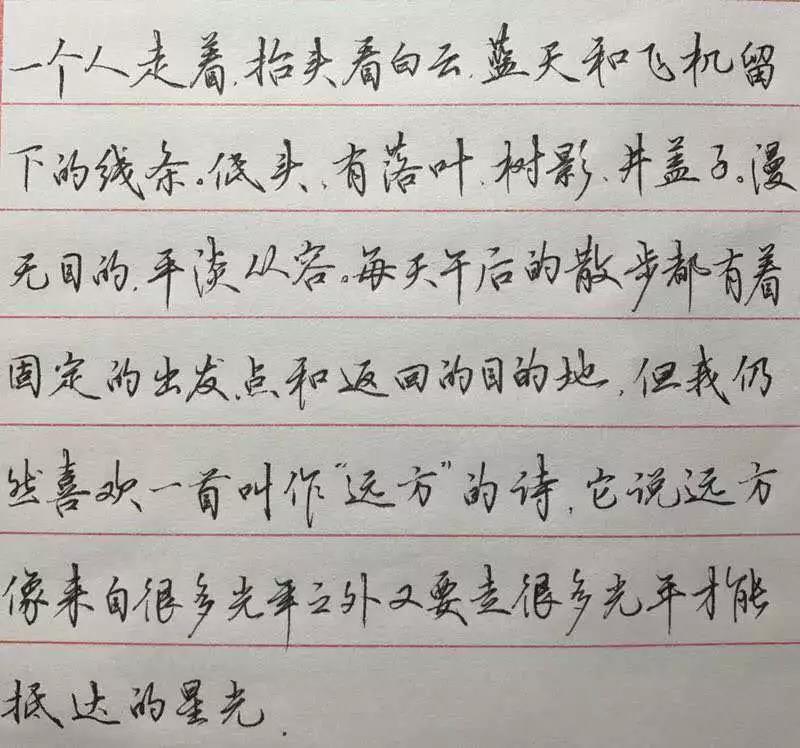 一个人走着,抬头看白云,蓝天和飞机留
下的线条。低头,有落叶,树影,井盖子。漫
无目的,平淡从容。每天午后的散步都有着
固定的出发点和返回的目的地,但我仍
然喜欢一首叫作“远方”的诗,它说远方
像来自很多光年之外又要走很多光年才能
抵达的星光.